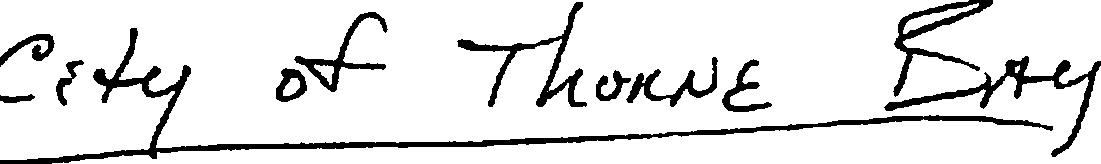 City of Thorne Bay